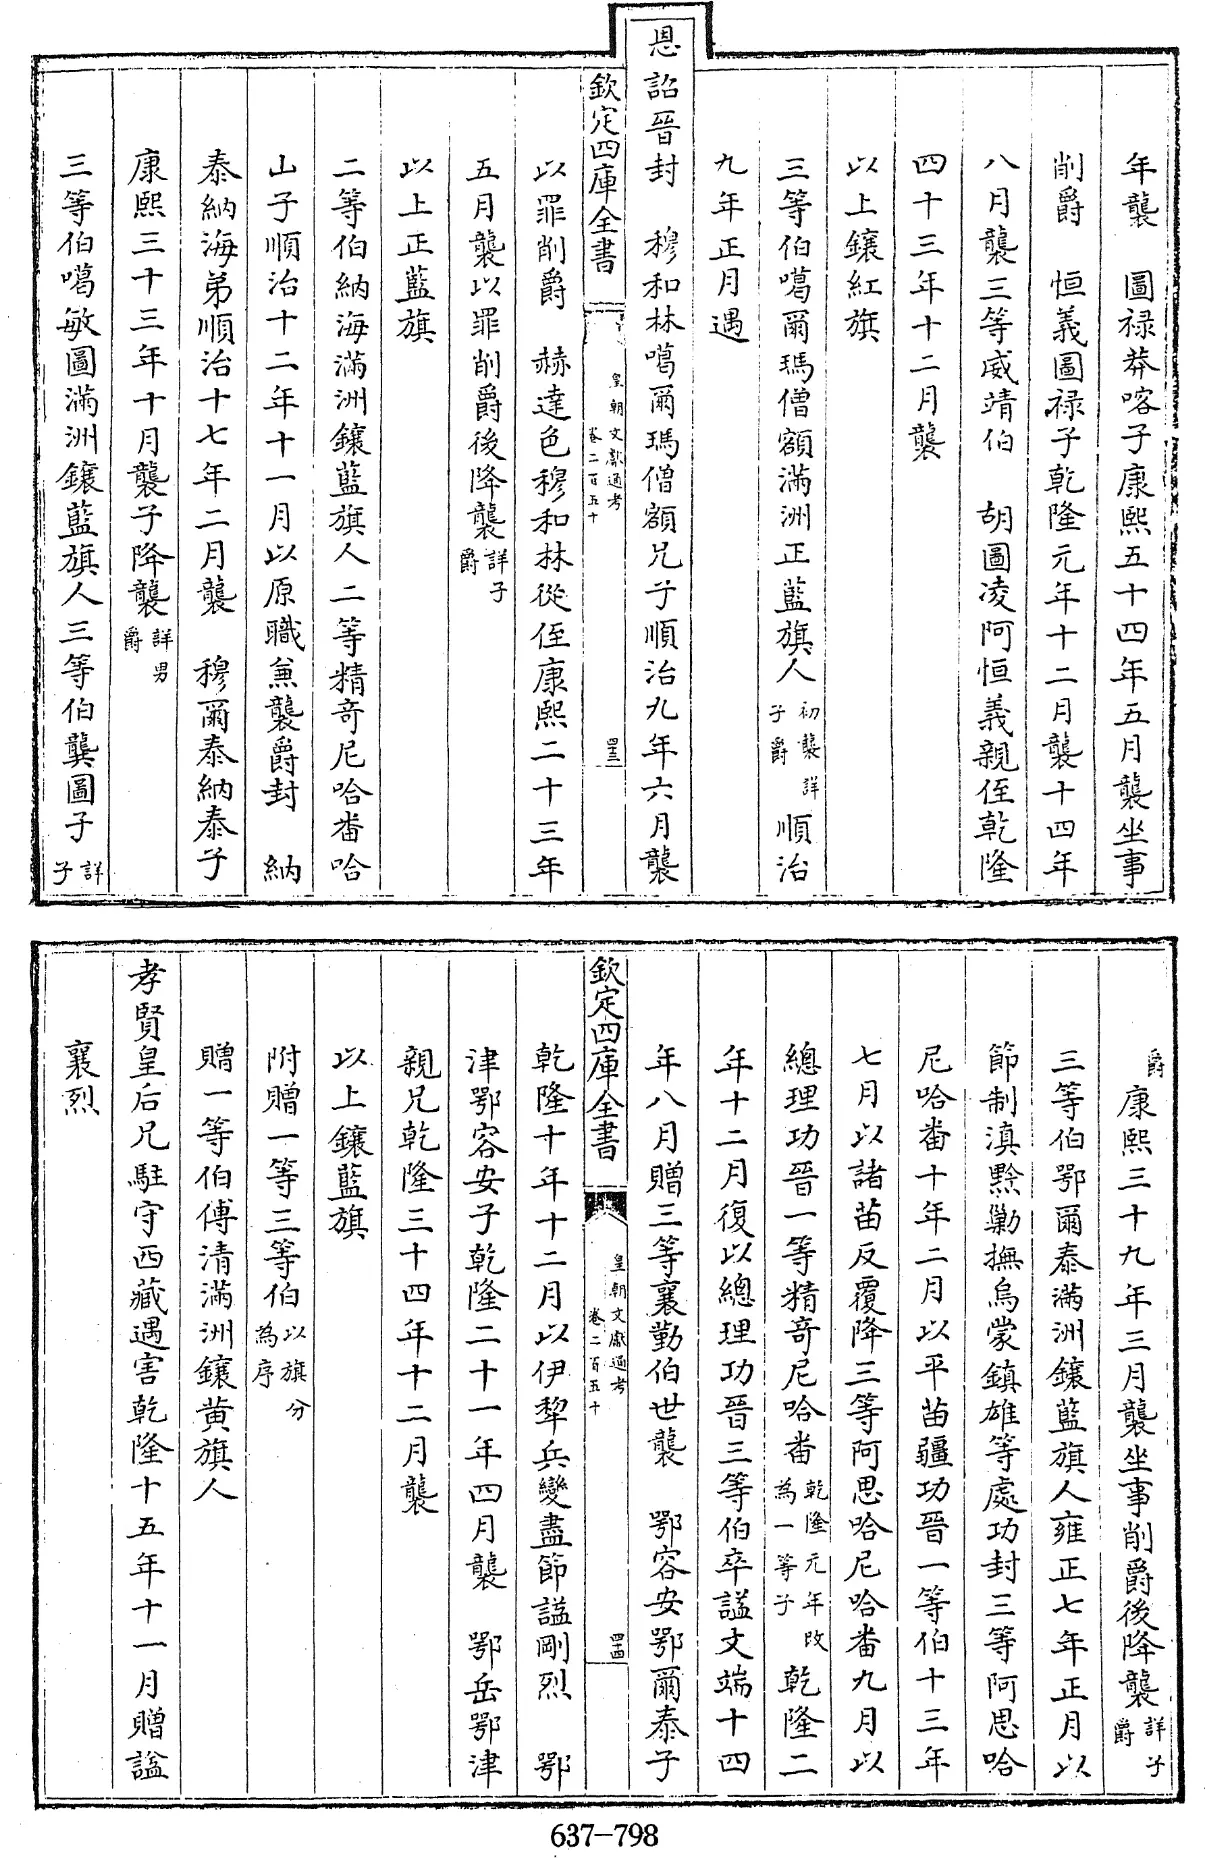 年襲　圖禄莽喀子康熙五十四年五月襲坐事
削爵　恒義圖禄子乾隆元年十二月襲十四年
八月襲三等威靖伯　胡圖凌阿恒義親侄乾隆
四十三年十二月襲
以上鑲紅旗
三等伯噶爾瑪僧額滿洲正藍旗人初襲詳子爵順治
九年正月遇
恩詔晉封　穆和林噶爾瑪僧額兄子順治九年六月襲
欽定四庫全書　皇朝文獻通考卷二百五十　四十三
以罪削爵　赫達色穆和林從侄康熙二十三年
五月襲以罪削爵後降襲詳子爵
以上正藍旗
二等伯納海滿洲鑲藍旗人二等精奇尼哈番哈
山子順治十二年十一月以原職兼襲爵封　納
泰納海弟順治十七年二月襲　穆爾泰納泰子
康熙三十三年十月襲子降襲詳男爵
三等伯噶敏圖滿洲鑲藍旗人三等伯龔圖子詳子
爵康熙三十九年三月襲坐事削爵後降襲詳子爵
三等伯鄂爾泰滿洲鑲藍旗人雍正七年正月以
節制滇黔勦撫烏蒙鎮雄等處功封三等阿思哈
尼哈番十年二月以平苗疆功晉一等伯十三年
七月以諸苗反覆降三等阿思哈尼哈番九月以
總理功晉一等精奇尼哈番乾隆元年改為一等子乾隆二
年十二月復以總理功晉三等伯卒諡文端十四
年八月贈三等襄勤伯世襲　鄂容安鄂爾泰子
欽定四庫全書　皇朝文獻通考卷二百五十　四十四
乾隆十年十二月以伊犂兵變盡節諡剛烈　鄂
津鄂容安子乾隆二十一年四月襲　鄂岳鄂津
親兄乾隆三十四年十二月襲
以上鑲藍旗
附贈一等三等伯以旗分為序
贈一等伯傅清滿洲鑲黄旗人
孝賢皇后兄駐守西藏遇害乾隆十五年十一月贈諡
襄烈
637-798